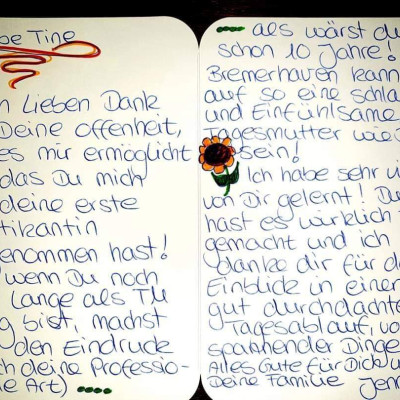 be Tine
n Lieben Dank
Deine Offenheit,
es mir ermöglicht
das Du mich
deine erste
tikantin
enommen hast!
wenn Du noch
lange als TM
g bist, machst
den Eindruck
ch deine Professio-
e Art)
als wärst du
schon 10 Jahre!
Bremerhaven kann
auf so eine schla
und Einfühlsame
Tagesmutter wie D
sein!
Ich habe sehr v
von Dir gelernt! Du
hast es wirklich t
gemacht und ich
danke dir für de
Einblick in einen
gut durchdachte
Tagesablauf, vo
spannender Dinge
Alles Gute für Dich u
Deine Familie Jen